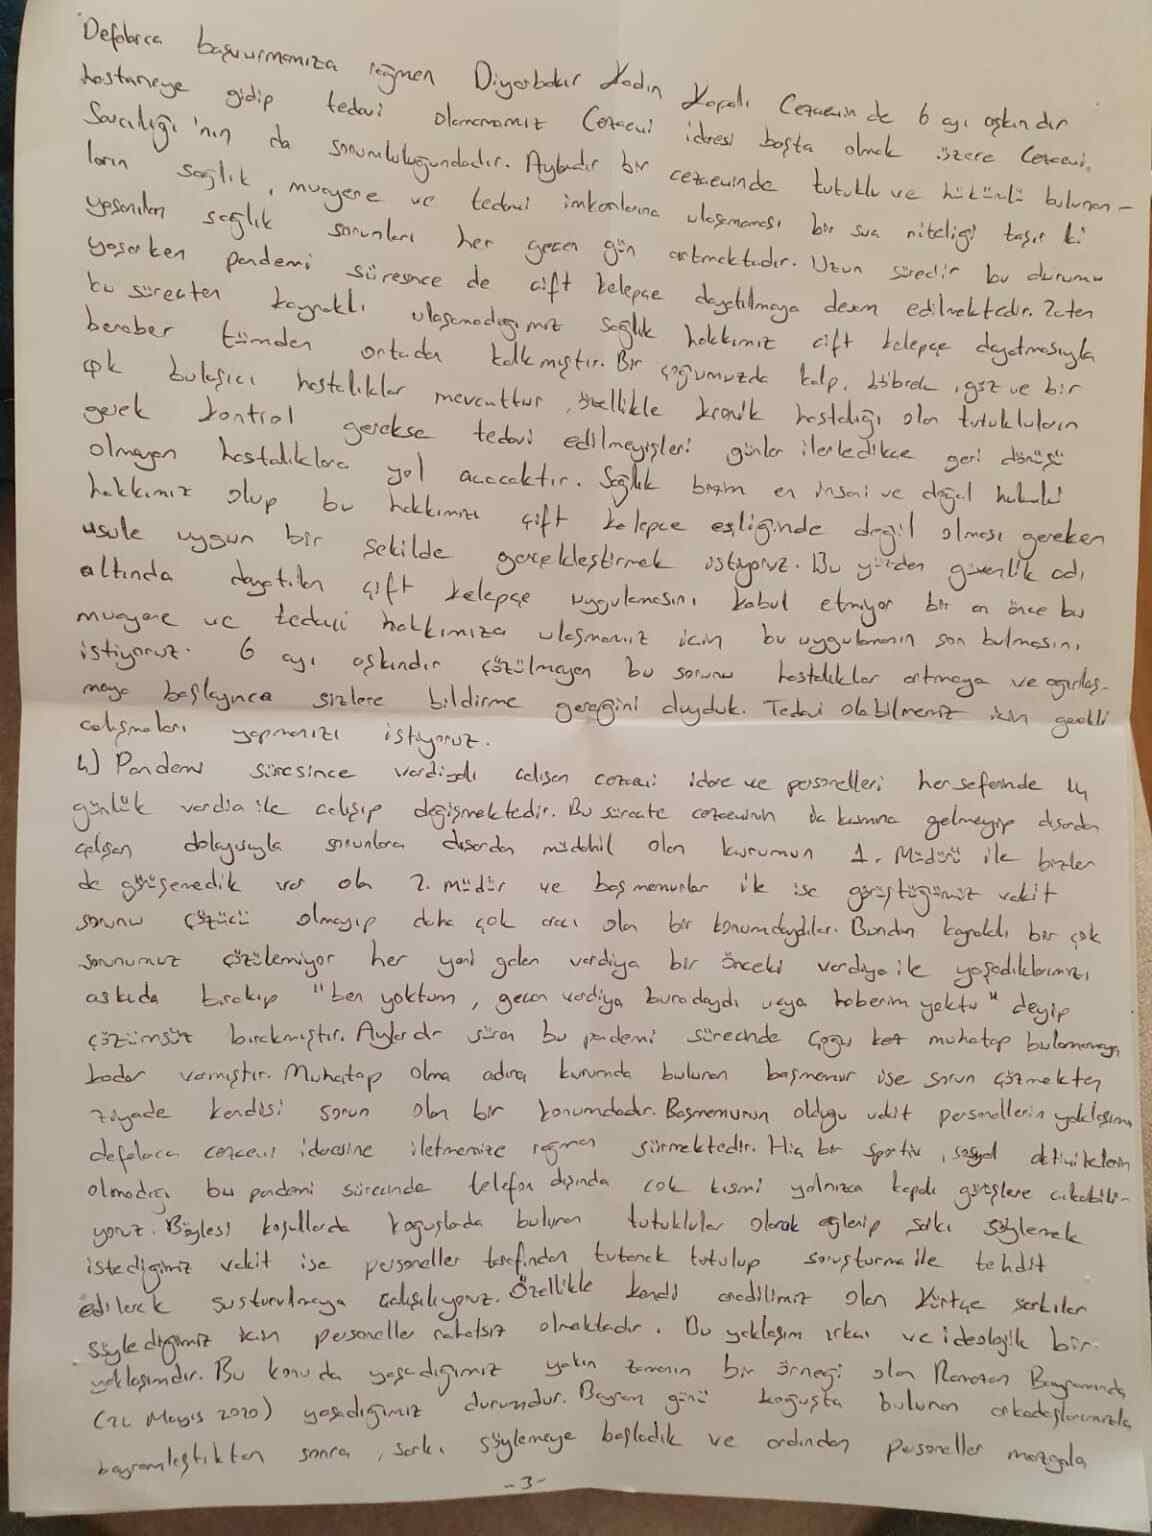 Defalarca başvurmamıza rağmen Diyarbakır Kadın Kapalı Cezaevinde 6 ayı aşkındır
hastaneye gidip tedavi olamamamız Cezaevi idaresi başta olmak üzere Cezaevi
Savcılığı'nın da sorumluluğundadır. Aylardır bir cezaevinde tutuklu ve hükümlü bulunan-
ların sağlık, muayene ve tedavi imkanlarına ulaşamaması bir suç niteliği taşır ki
yaşanılan sağlık sorunları her geçen gün artmaktadır. Uzun süredir bu durumu
yaşarken pandemi süresince de çift kelepçe dayatılmaya devam edilmektedir. Zaten
bu süreçten kaynaklı ulaşamadığımız sağlık hakkımız çift kelepçe dayatmasıyla
beraber tümden ortada kalkmıştır. Bir çoğumuzda kalp, böbrek, göz ve bir
çok bulaşıcı hastalıklar mevcuttur, özellikle kronik hastalığı olan tutukluların
gerek kontrol gerekse tedavi edilmeyişleri günler ilerledikçe geri dönüşü
olmayan hastalıklara yol açacaktır. Sağlık bizim en insani ve doğal hukuki
hakkımız olup bu hakkımızı çift kelepçe eşliğinde değil olması gereken
usule uygun bir şekilde gerçekleştirmek istiyoruz. Bu yüzden güvenlik adı
altında dayatılan çift kelepçe uygulamasını kabul etmiyor bir an önce bu
muayene ve tedavi hakkımıza ulaşmamız için bu uygulamanın son bulmasını
istiyoruz. 6 ayı aşkındır çözülmeyen bu sorunu hastalıklar artmaya ve ağırlaş-
maya başlayınca sizlere bildirme gereğini duyduk. Tedavi olabilmemiz için gerekli
çalışmaları yapmanızı istiyoruz.
4) Pandemi süresince vardiyalı çalışan cezaevi idare ve personelleri her seferinde 14
günlük vardia ile çalışıp değişmektedir. Bu süreçte cezaevinin iç kısmına gelmeyip dışardan
çalışan dolayısıyla sorunlara dışardan müdahil olan kurumun 1. Müdürü ile bizler
de görüşemedik var olan 2. müdür ve başmemurlar ile ise görüştüğümüz vakit
sorunu çözücü olmayıp daha çok aracı olan bir konumdaydılar. Bundan kaynaklı bir çok
sorunumuz çözülemiyor her yeni gelen vardiya bir önceki vardiya ile yaşadıklarımızı
askıda bırakıp "ben yoktum, geçen vardiya buradaydı veya haberim yoktu" deyip
çözümsüz bırakmıştır. Aylardır süren bu pandemi sürecinde çoğu kez muhatap bulamamaya
kadar varmıştır. Muhatap olma adına kurumda bulunan başmemur ise sorun çözmekten
ziyade kendisi sorun olan bir konumdadır. Başmemurun olduğu vakit personellerin yaklaşımı
defalarca cezaevi idaresine iletmemize rağmen sürmektedir. Hiç bir sportiv, sosyal aktivitelerin
olmadığı bu pandemi sürecinde telefon dışında çok kısmi yalnızca kapalı görüşlere çıkabili-
yoruz. Böylesi koşullarda koğuşlarda bulunan tutuklular olarak eğlenip şarkı söylemek
istediğimiz vakit ise personeller tarafından tutanak tutulup soruşturma ile tehdit
edilerek susturulmaya çalışılıyoruz. Özellikle kendi anadilimiz olan Kürtçe şarkılar
söylediğimiz için personeller rahatsız olmaktadır. Bu yaklaşım ırkçı ve ideolojik bir
yaklaşımdır. Bu konuda yaşadığımız yakın zamanın bir örneği olan Ramazan Bayramında
(24 Mayıs 2020) yaşadığımız durumdur. Bayram günü koğuşta bulunan arkadaşlarımızla
bayramlaştıktan sonra, şarkı söylemeye başladık ve ardından personeller mazgala
-3-